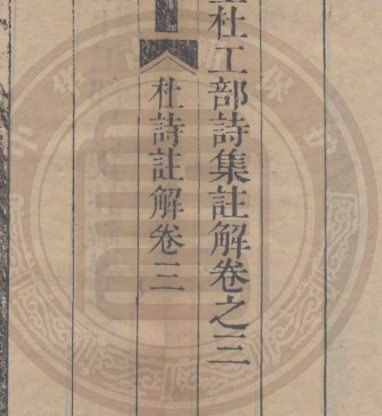 杜工部詩集註解卷之三
杜詩註解卷三